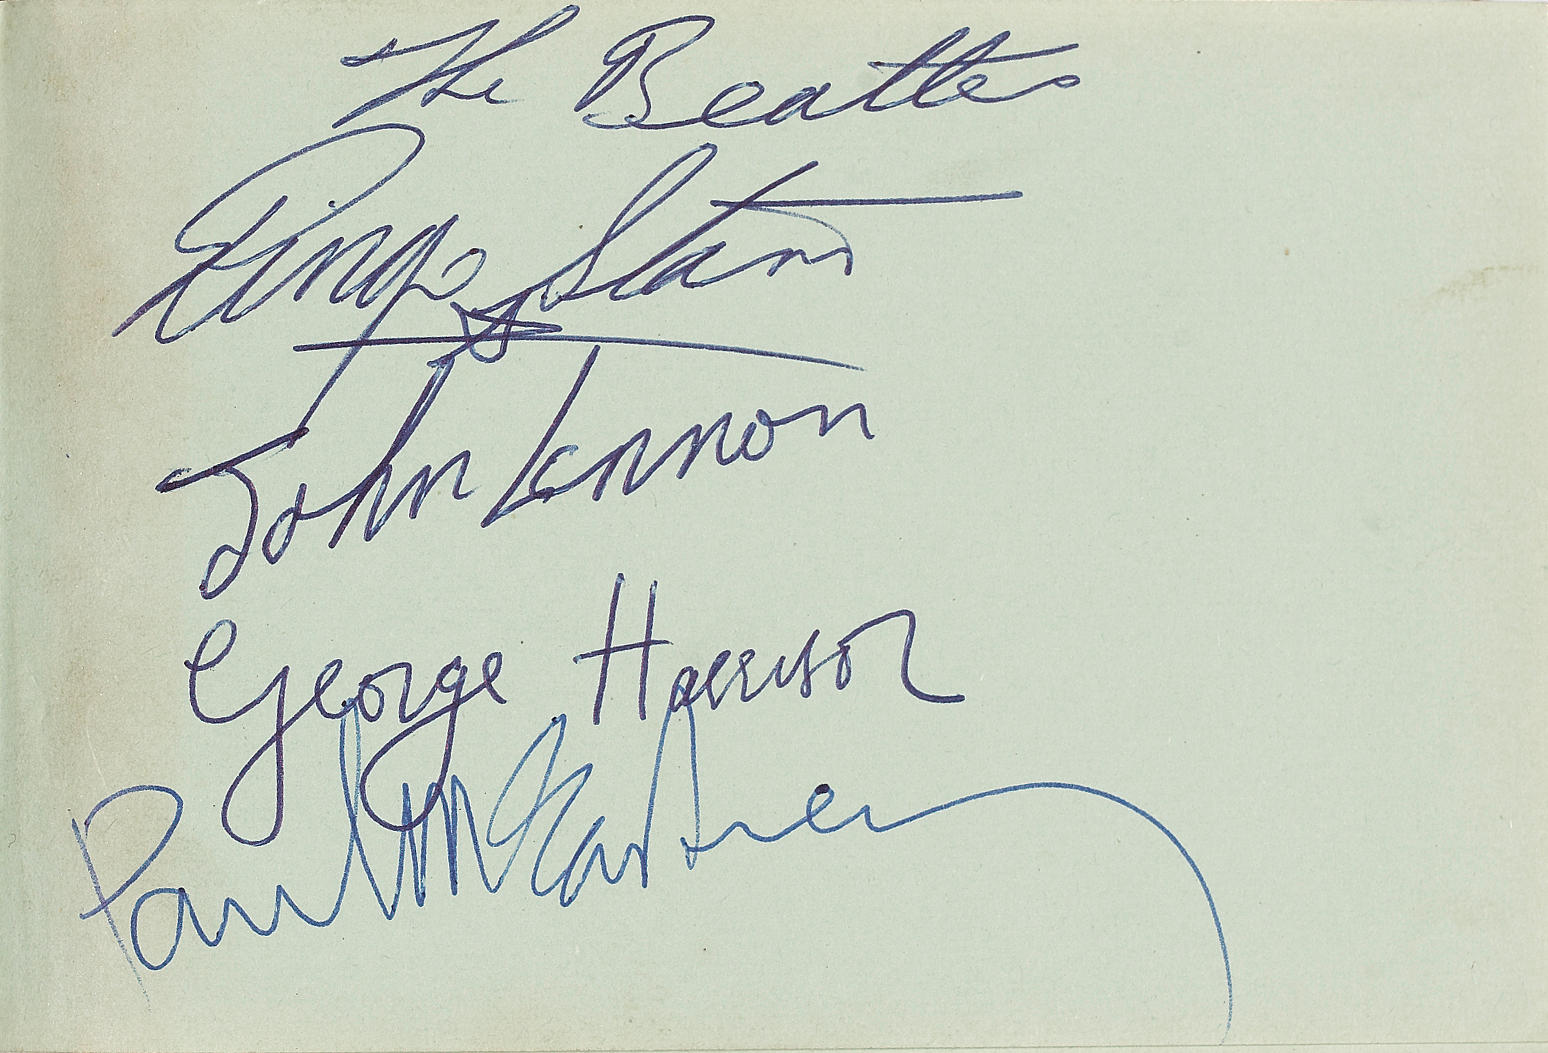 The Beatles
Ringo Starr
John Lennon
George Harrison
Paul McCartney